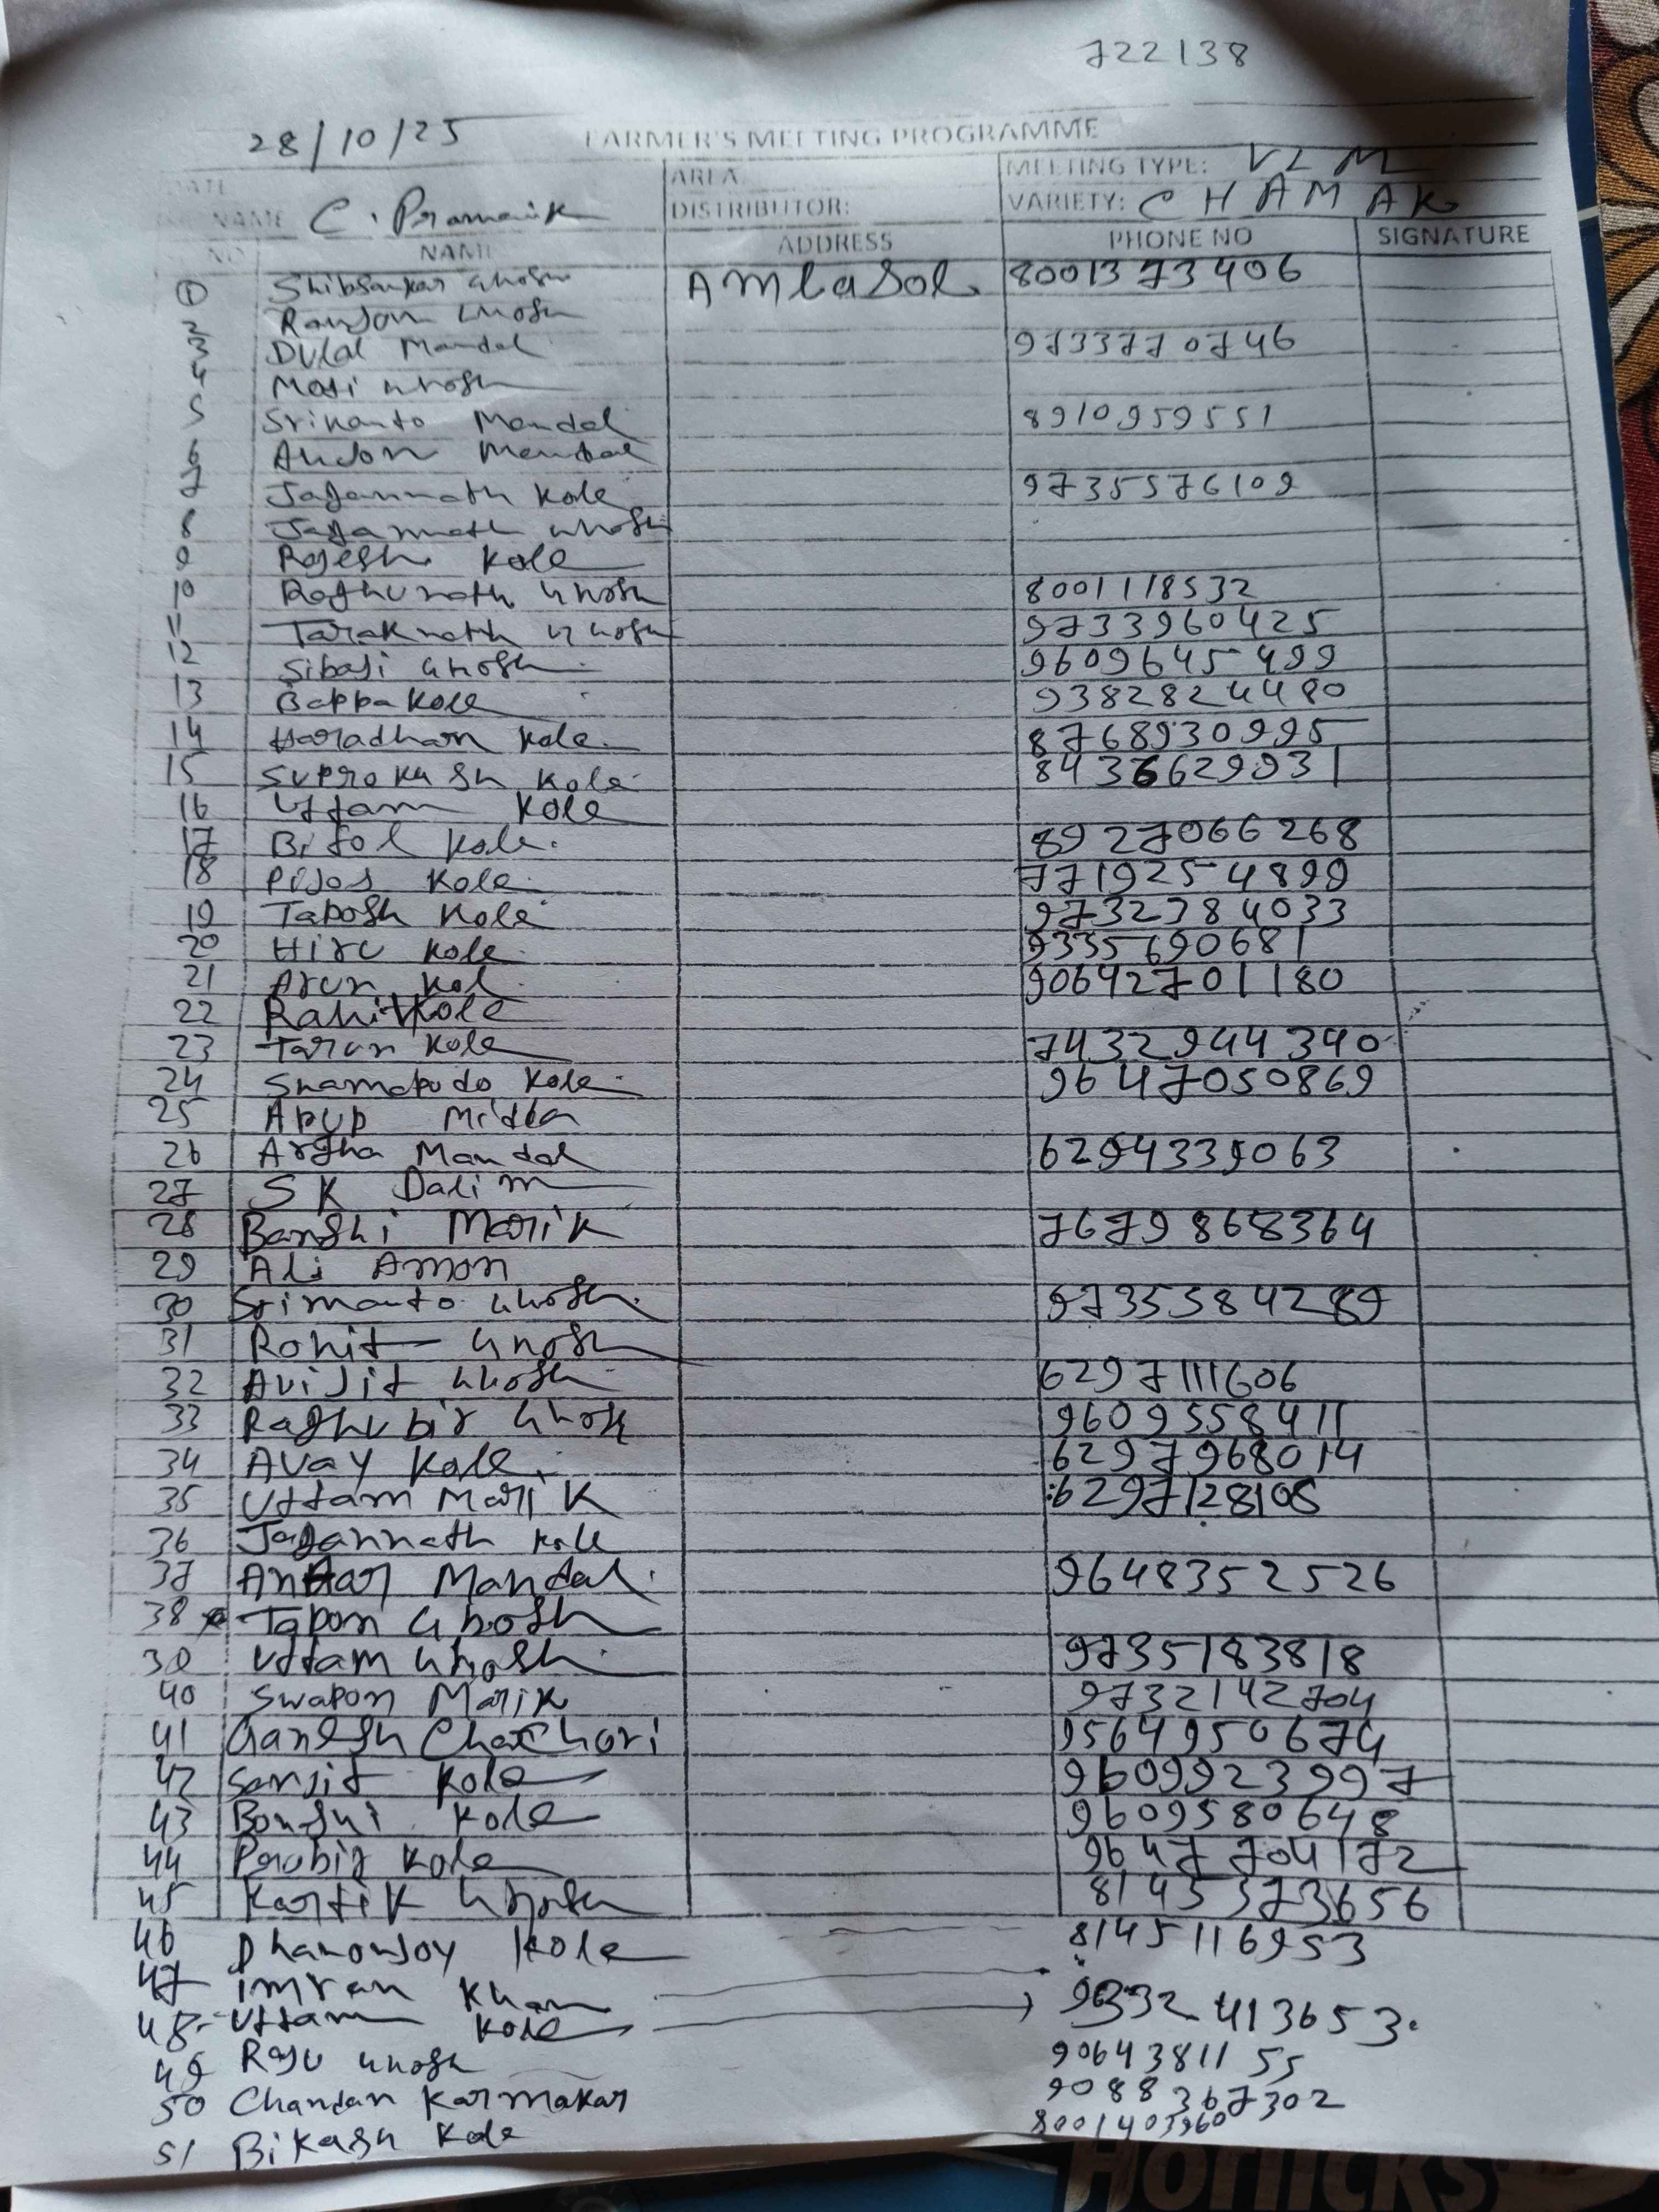 722138
28/10/25 FARMER'S MEETING PROGRAMME
DATE AREA: MEETING TYPE: VLM
NAME C. Pramanik DISTRIBUTOR: VARIETY: CHAMAK
NO NAME ADDRESS PHONE NO SIGNATURE
1 Shibsankar Ghosh Amlasol 8001373406
2 Ranjan Ghosh
3 Dulal Mandal 9733770746
4 Moti Ghosh
5 Srikanto Mandal 8910959551
6 Mandal
7 Jagannath Kole 9735576109
8 Jagannath Ghosh
9 Rajesh Kole
10 Raghunath Ghosh 8001118532
11 Taraknath Ghosh 9733960425
12 Sibaji Ghosh 9609645499
13 Bappa Kole 9382824480
14 Haradhan Kole 8768930995
15 Suprokash Kole 8436629931
16 Uttam Kole
17 Kole 8927066268
18 Kole 7719254899
19 Taposh Kole 9732384033
20 Hiru Kole 9335690681
21 Arun Kol 90642701180
22 Kole
23 Tarun Kole 7432944390
24 Shamapodo Kole 9647050869
25 Apup
26 Argha Mandal 6294339063
27 SK Dalim
28 Banshi Marik 7679868364
29 Ali Amon
30 Srimanto Ghosh 9735584289
31 Rohit Ghosh
32 Avijit Ghosh 6297111606
33 Raghubir Ghosh 9609558411
34 Avay Kole 6297968014
35 Uttam Marik 6297128108
36 Jagannath Kole
37 Mandal 9648352526
38 Tapon Ghosh
39 Uttam Ghosh 9735183818
40 Swapon Marik 9732142704
41 Ganesh 9564950674
42 Sanjit Kole 9609923997
43 Bonshi Kole 9609580648
44 Probir Kole 9647704172
45 Kartik Ghosh 8145373656
46 Dhanonjoy Kole 8145116953
47 Imran Khan
48 Uttam Kole 9332413653
49 Raju Ghosh 9064381155
50 Chandan Karmakar 9088367302
51 Bikash Kole 8001403960
Horlicks